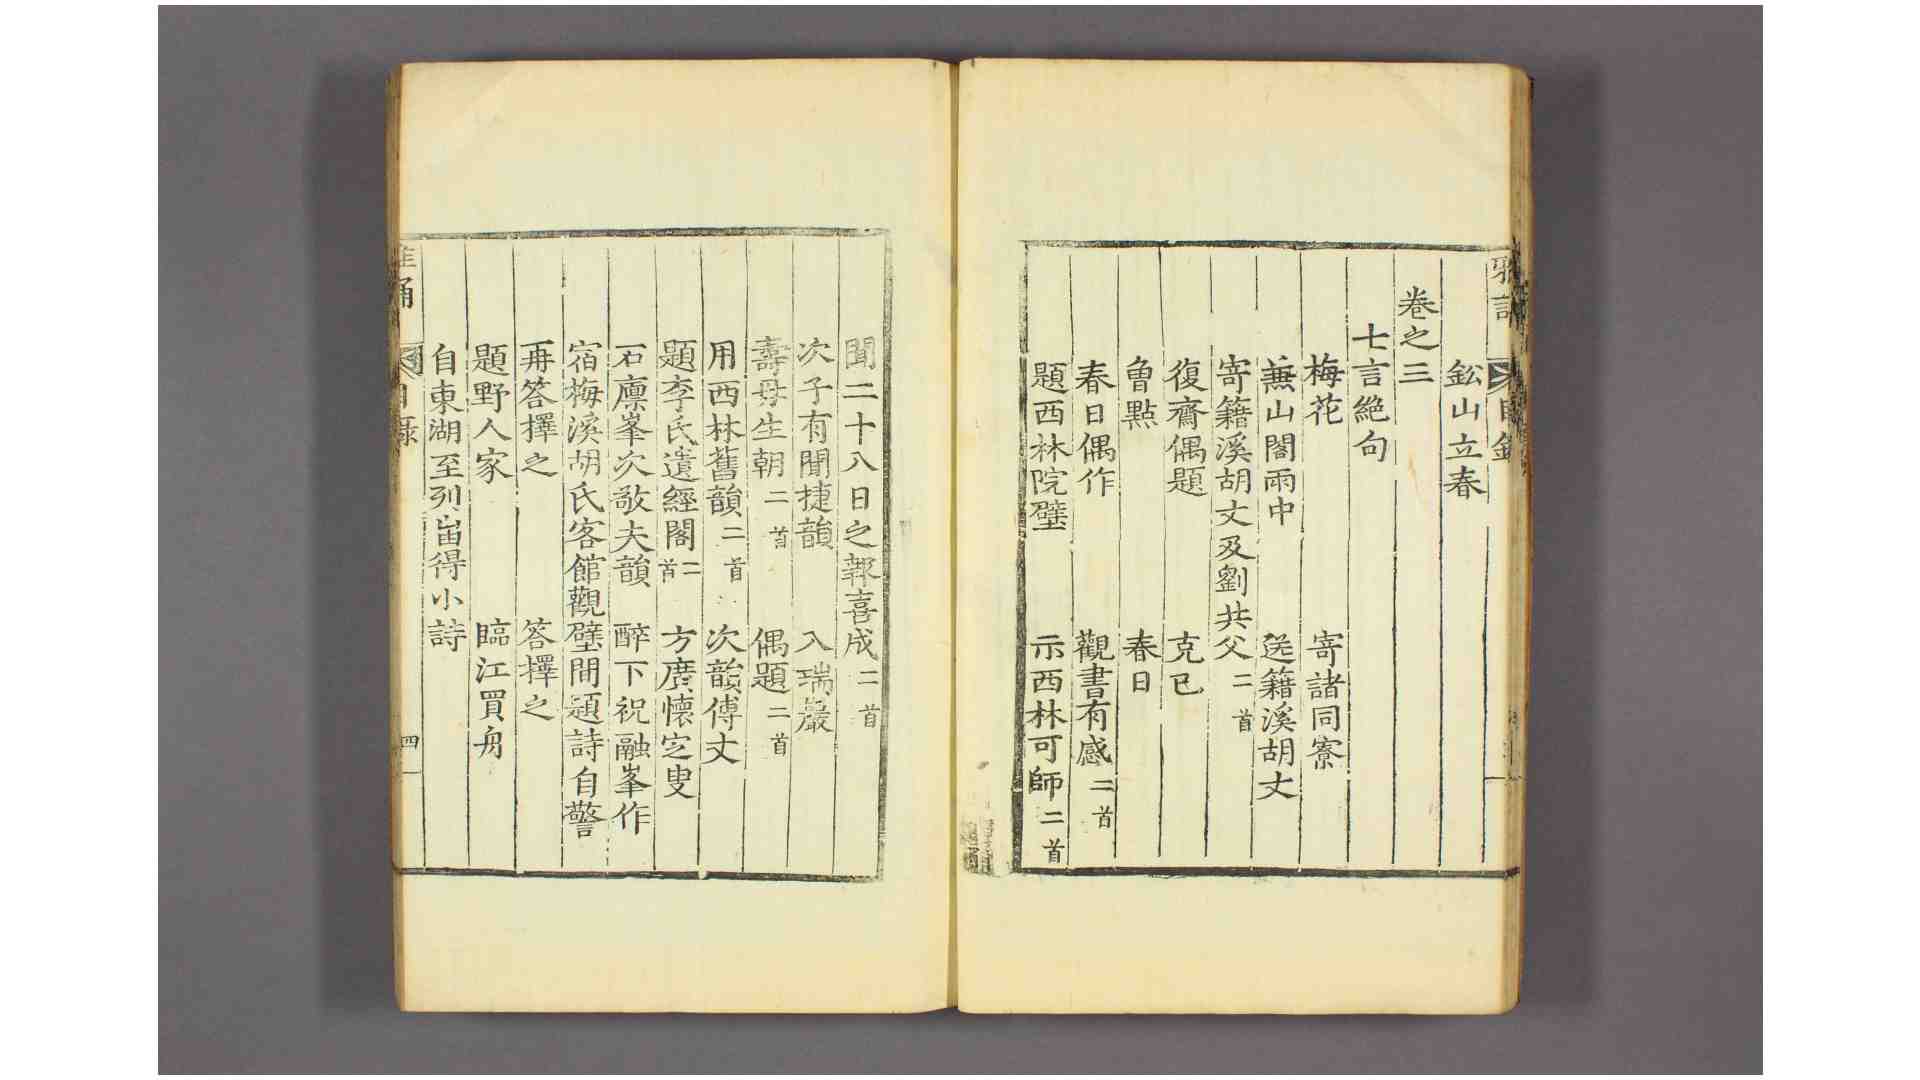 雅誦 目録
鈆山立春
卷之三
七言絶句
梅花 寄諸同寮
兼山閣雨中 送籍溪胡丈
寄籍溪胡丈及劉共父二首
復齋偶題 克己
曾點 春日
春日偶作 觀書有感二首
題西林院壁 示西林可師二首
聞二十八日之報喜成二首
次子有聞捷韻 入瑞巖
壽母生朝二首 偶題二首
用西林舊韻二首 次韻傅丈
題李氏遺經閣二首 方廣懷定叟
石廩峯次敬夫韻 醉下祝融峯作
宿梅溪胡氏客館觀壁間題詩自警
再答擇之 答擇之
題野人家 臨江買舟
自東湖至列岫得小詩
誦 目録 四